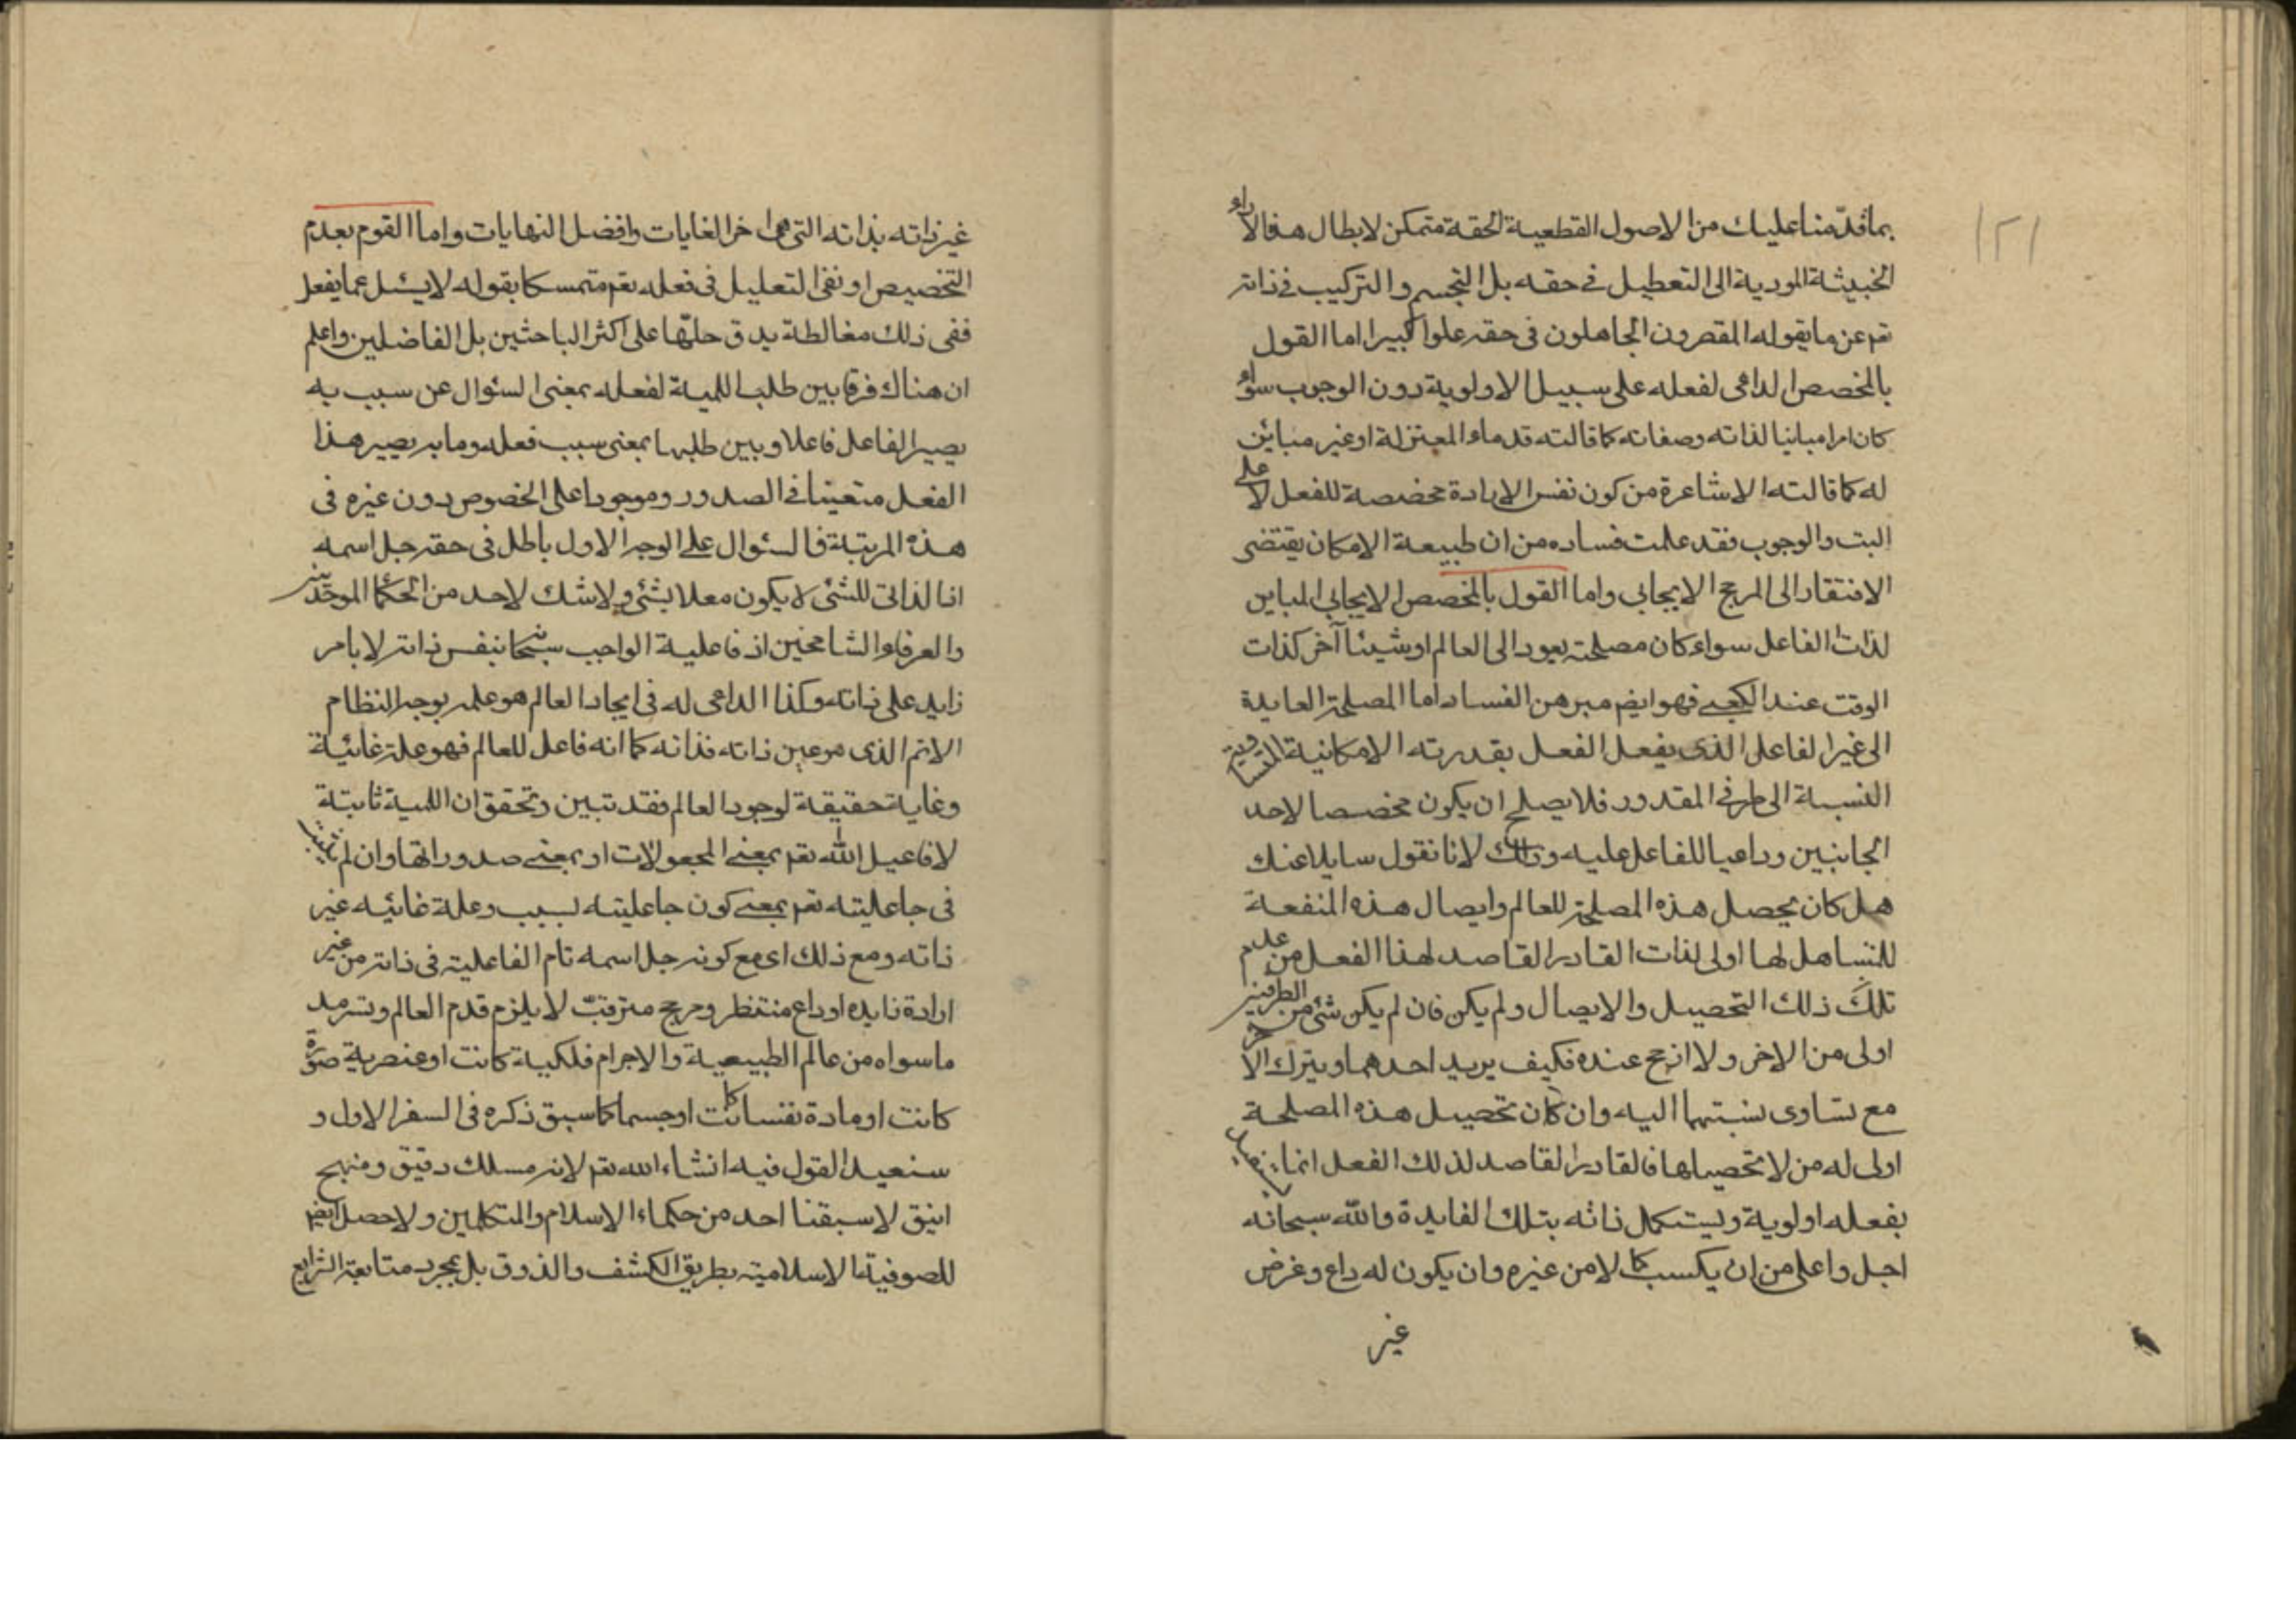 ١٢١
بما قدّمنا عليك من الاصول القطعية الحقة متمكن لابطال هذه الآراء
الخبيثة المودية الى التعطيل فى حقه بل التجسم والتركيب فى ذاته
تعم عن ما يقوله المقصرون الجاهلون فى حقه علوا كبيرا اما القول
بالمخصص الداعى لفعله على سبيل الاولوية دون الوجوب سواء
كان امرا مباينا لذاته وصفاته كما قالته قدماء المعتزلة او غير مباين
له كما قالته الاشاعرة من كون نفس الارادة مخصصة للفعل لا على
البت والوجوب فقد علمت فساده من ان طبيعة الامكان يقتضى
الافتقار الى المرجح الايجابى واما القول بالمخصص الايجابى المباين
لذات الفاعل سواء كان مصلحته يعود الى العالم او شيئا آخر كذات
الوقت عند الكعبى فهو ايضم مبرهن الفساد اما المصلحة العايدة
الى غير الفاعل الذى يفعل الفعل بقدرته الامكانية المتساوية
النسبة الى طرفى المقدور فلا يصلح ان يكون مخصصا لاحد
الجانبين وداعيا للفاعل عليه وذلك لانا نقول سايلا عنك
هل كان يحصل هذه المصلحة للعالم وايصال هذه المنفعة
للمتساهل لها اولى لذات القادر القاصد لهذا الفعل من عدم
تلك ذلك التحصيل والايصال ولم يكن فان لم يكن شئ من الطرفين
اولى من الاخر ولا ارجح عنده فكيف يريد احدهما ويترك الآخر
مع تساوى نسبتهما اليه وان كان تحصيل هذه المصلحة
اولى له من لا تحصيلها فالقادر القاصد لذلك الفعل انما يستفيد
بفعله اولوية ويستكمل ذاته بتلك الفايدة والله سبحانه
اجل واعلى من ان يكسب كمالا من غيره وان يكون له داع وغرض
غير
غير ذاته بذاته التى هى اخر الغايات وافضل النهايات واما القوم بعدم
التخصيص او نفى التعليل فى فعله تعم متمسكا بقوله لا يسئل عما يفعل
ففى ذلك مغالطة يدق حلّها على اكثر الباحثين بل الفاضلين واعلم
ان هناك فرقا بين طلب اللمية لفعله بمعنى السئوال عن سبب به
يصير الفاعل فاعلا وبين طلبها بمعنى سبب فعله وما به يصير هذا
الفعل متعينا فى الصدور وموجودا على الخصوص دون غيره فى
هذه المرتبة فالسئوال على الوجه الاول باطل فى حقه جل اسمه
اذ الذاتى للشئ لا يكون معللا بشئ ولا شك لاحد من الحكماء الموحدين
والعرفاء الشامخين ان فاعلية الواجب سبحانه بنفس ذاته لا بامر
زايد على ذاته وكذا الداعى له فى ايجاد العالم هو علمه بوجه النظام
الاتم الذى هو عين ذاته فذاته كما انه فاعل للعالم فهو علة غائية
وغاية حقيقة لوجود العالم فقد تبين وتحقق ان اللمية ثابتة
لافاعيل الله تعم بمعنى المجعولات او بمعنى صدوراتها وان لم تثبت
فى جاعليته تعم بمعنى كون جاعليته لسبب وعلة غائيه غير
ذاته ومع ذلك اى مع كونه جل اسمه تام الفاعلية فى ذاته من غير
ارادة زايده او داع منتظر ومرجح مترقب لا يلزم قدم العالم وتسرمد
ماسواه من عالم الطبيعية والاجرام فلكية كانت او عنصرية صورة
كانت او مادة نفسا كانت او جسما كما سبق ذكره فى السفر الاول و
سنعيد القول فيه انشاء الله تعم لانه مسلك دقيق ومنهج
انيق لا سبقنا احد من حكماء الاسلام والمتكلمين ولا حصل ايضم
للصوفية الاسلامية بطريق الكشف والذوق بل بمجرد متابعة الشرايع